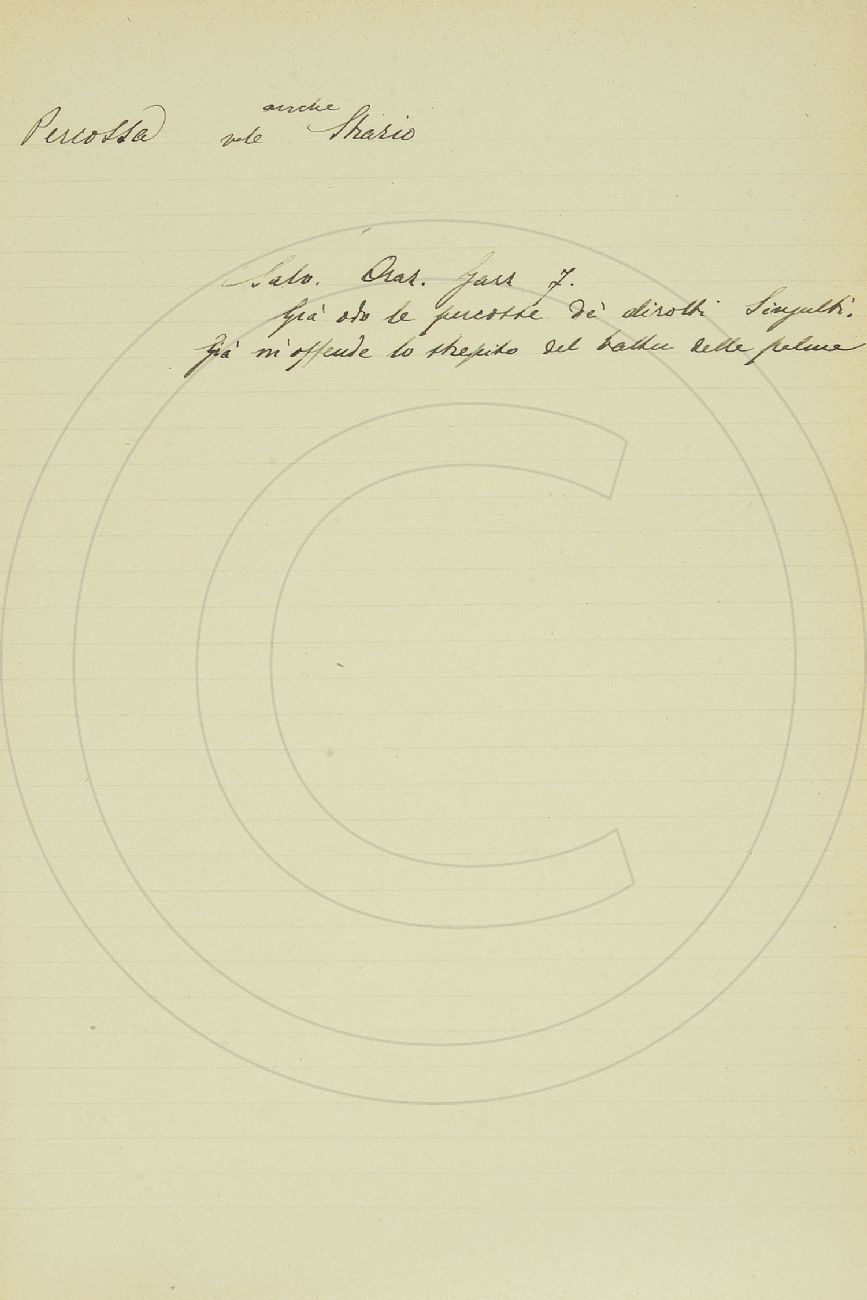 Percossa vale anche Strazio
Salv. Oraz. Garz 7.
Già odo le percosse de' dirotti Singulti.
Già m'offende lo strepito del batter delle palme